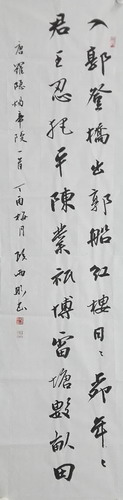 入郭登橋出郭船紅樓日〻柳年〻
君王忍把平陳業祇博雷塘數畝田
唐羅隱煬帝陵一首丁酉梅月